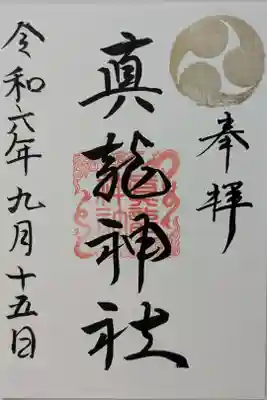 奉拝
真龍神社
令和六年九月十五日